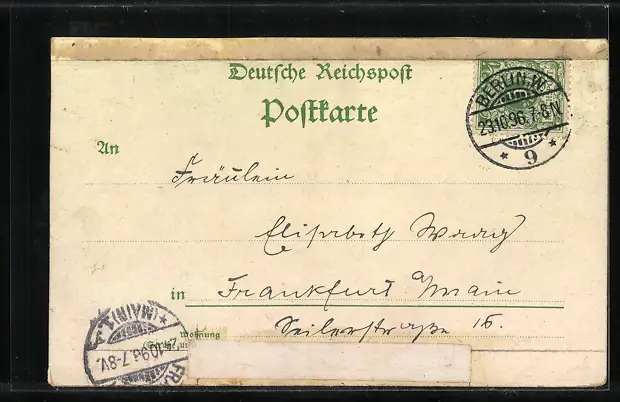 Deutsche Reichspost
Postkarte
BERLIN.W.
23.10.96.7-8N
* 9 *
An
Fräulein
Elisabeth Waag
in Frankfurt a/main
Seilerstraße 16.
Wohnung
*(MAIN)1.*
10.96.7-8V.
FR